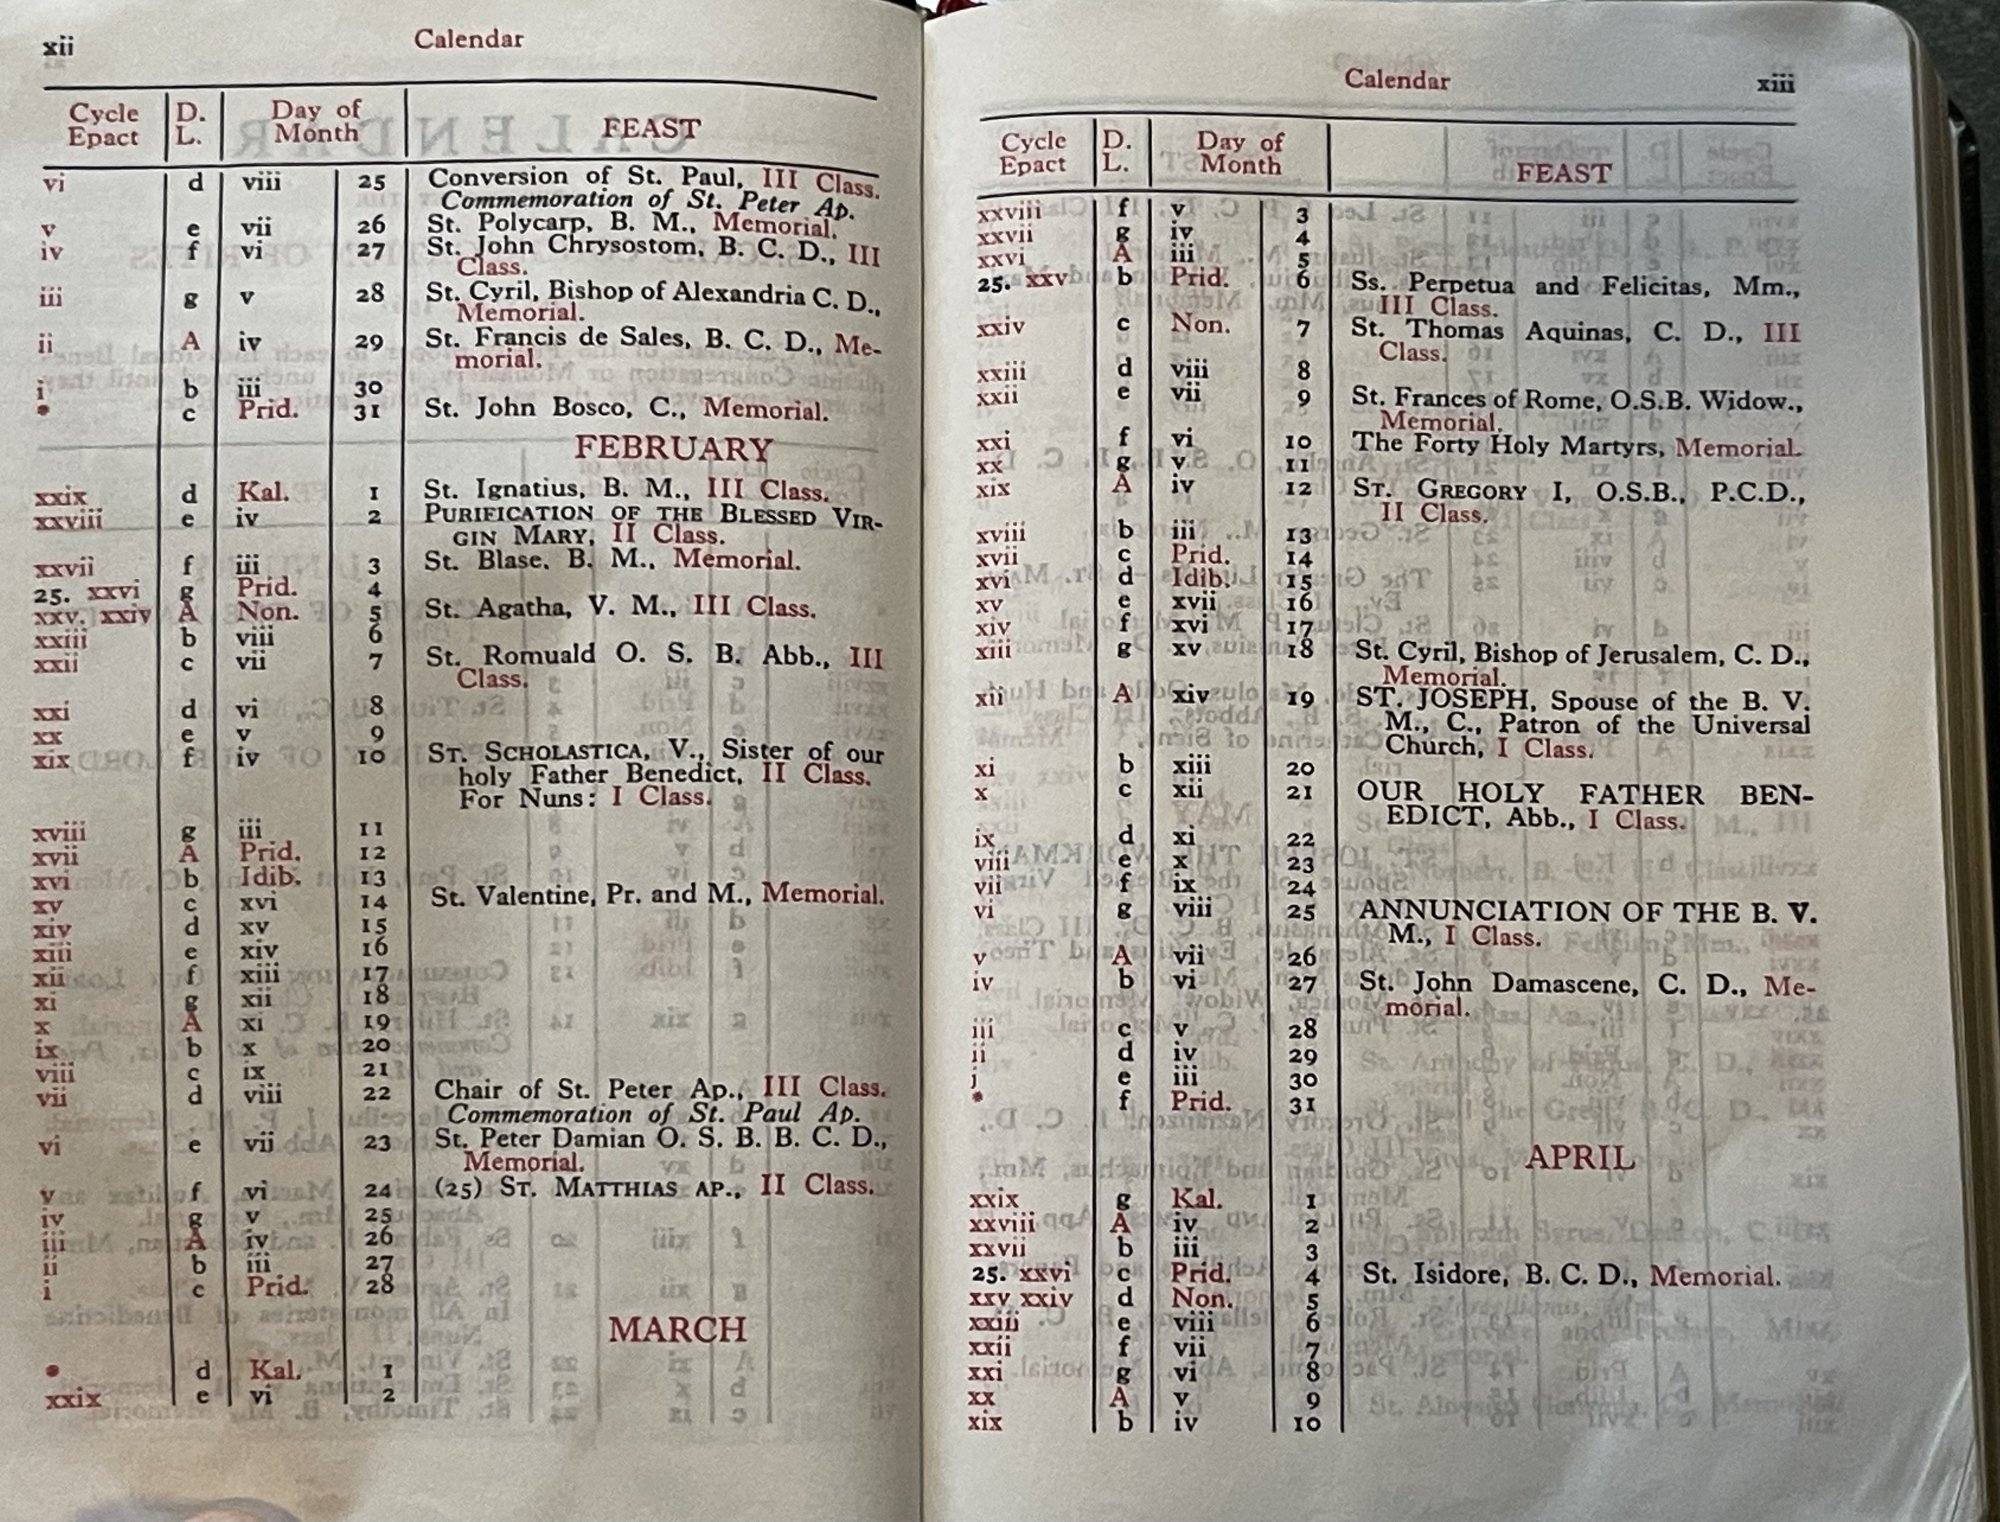 xii Calendar
Cycle D. Day of FEAST
Epact L. Month
vi d viii 25 Conversion of St. Paul, III Class.
Commemoration of St. Peter Ap.
v e vii 26 St. Polycarp, B. M., Memorial.
iv f vi 27 St. John Chrysostom, B. C. D., III
Class.
iii g v 28 St. Cyril, Bishop of Alexandria C. D.,
Memorial.
ii A iv 29 St. Francis de Sales, B. C. D., Me-
morial.
i b iii 30
* c Prid. 31 St. John Bosco, C., Memorial.
FEBRUARY
xxix d Kal. 1 St. Ignatius, B. M., III Class.
xxviii e iv 2 PURIFICATION OF THE BLESSED VIR-
GIN MARY, II Class.
xxvii f iii 3 St. Blase. B. M., Memorial.
25. xxvi g Prid. 4
xxv. xxiv A Non. 5 St. Agatha, V. M., III Class.
xxiii b viii 6
xxii c vii 7 St. Romuald O. S. B. Abb., III
Class.
xxi d vi 8
xx e v 9
xix f iv 10 ST. SCHOLASTICA, V., Sister of our
holy Father Benedict, II Class.
For Nuns: I Class.
xviii g iii 11
xvii A Prid. 12
xvi b Idib. 13
xv c xvi 14 St. Valentine, Pr. and M., Memorial.
xiv d xv 15
xiii e xiv 16
xii f xiii 17
xi g xii 18
x A xi 19
ix b x 20
viii c ix 21
vii d viii 22 Chair of St. Peter Ap., III Class.
Commemoration of St. Paul Ap.
vi e vii 23 St. Peter Damian O. S. B. B. C. D.,
Memorial.
v f vi 24 (25) ST. MATTHIAS AP., II Class.
iv g v 25
iii A iv 26
ii b iii 27
i c Prid. 28
MARCH
* d Kal. 1
xxix e vi 2
Calendar xiii
Cycle D. Day of FEAST
Epact L. Month
xxviii f v 3
xxvii g iv 4
xxvi A iii 5
25. xxv b Prid. 6 Ss. Perpetua and Felicitas, Mm.,
III Class.
xxiv c Non. 7 St. Thomas Aquinas, C. D., III
Class.
xxiii d viii 8
xxii e vii 9 St. Frances of Rome, O.S.B. Widow.,
Memorial.
xxi f vi 10 The Forty Holy Martyrs, Memorial.
xx g v 11
xix A iv 12 ST. GREGORY I, O.S.B., P.C.D.,
II Class.
xviii b iii 13
xvii c Prid. 14
xvi d Idib. 15
xv e xvii 16
xiv f xvi 17
xiii g xv 18 St. Cyril, Bishop of Jerusalem, C. D.,
Memorial.
xii A xiv 19 ST. JOSEPH, Spouse of the B. V.
M., C., Patron of the Universal
Church, I Class.
xi b xiii 20
x c xii 21 OUR HOLY FATHER BEN-
EDICT, Abb., I Class.
ix d xi 22
viii e x 23
vii f ix 24
vi g viii 25 ANNUNCIATION OF THE B. V.
M., I Class.
v A vii 26
iv b vi 27 St. John Damascene, C. D., Me-
morial.
iii c v 28
ii d iv 29
j e iii 30
* f Prid. 31
APRIL
xxix g Kal. 1
xxviii A iv 2
xxvii b iii 3
25. xxvi c Prid. 4 St. Isidore, B. C. D., Memorial.
xxv xxiv d Non. 5
xxiii e viii 6
xxii f vii 7
xxi g vi 8
xx A v 9
xix b iv 10